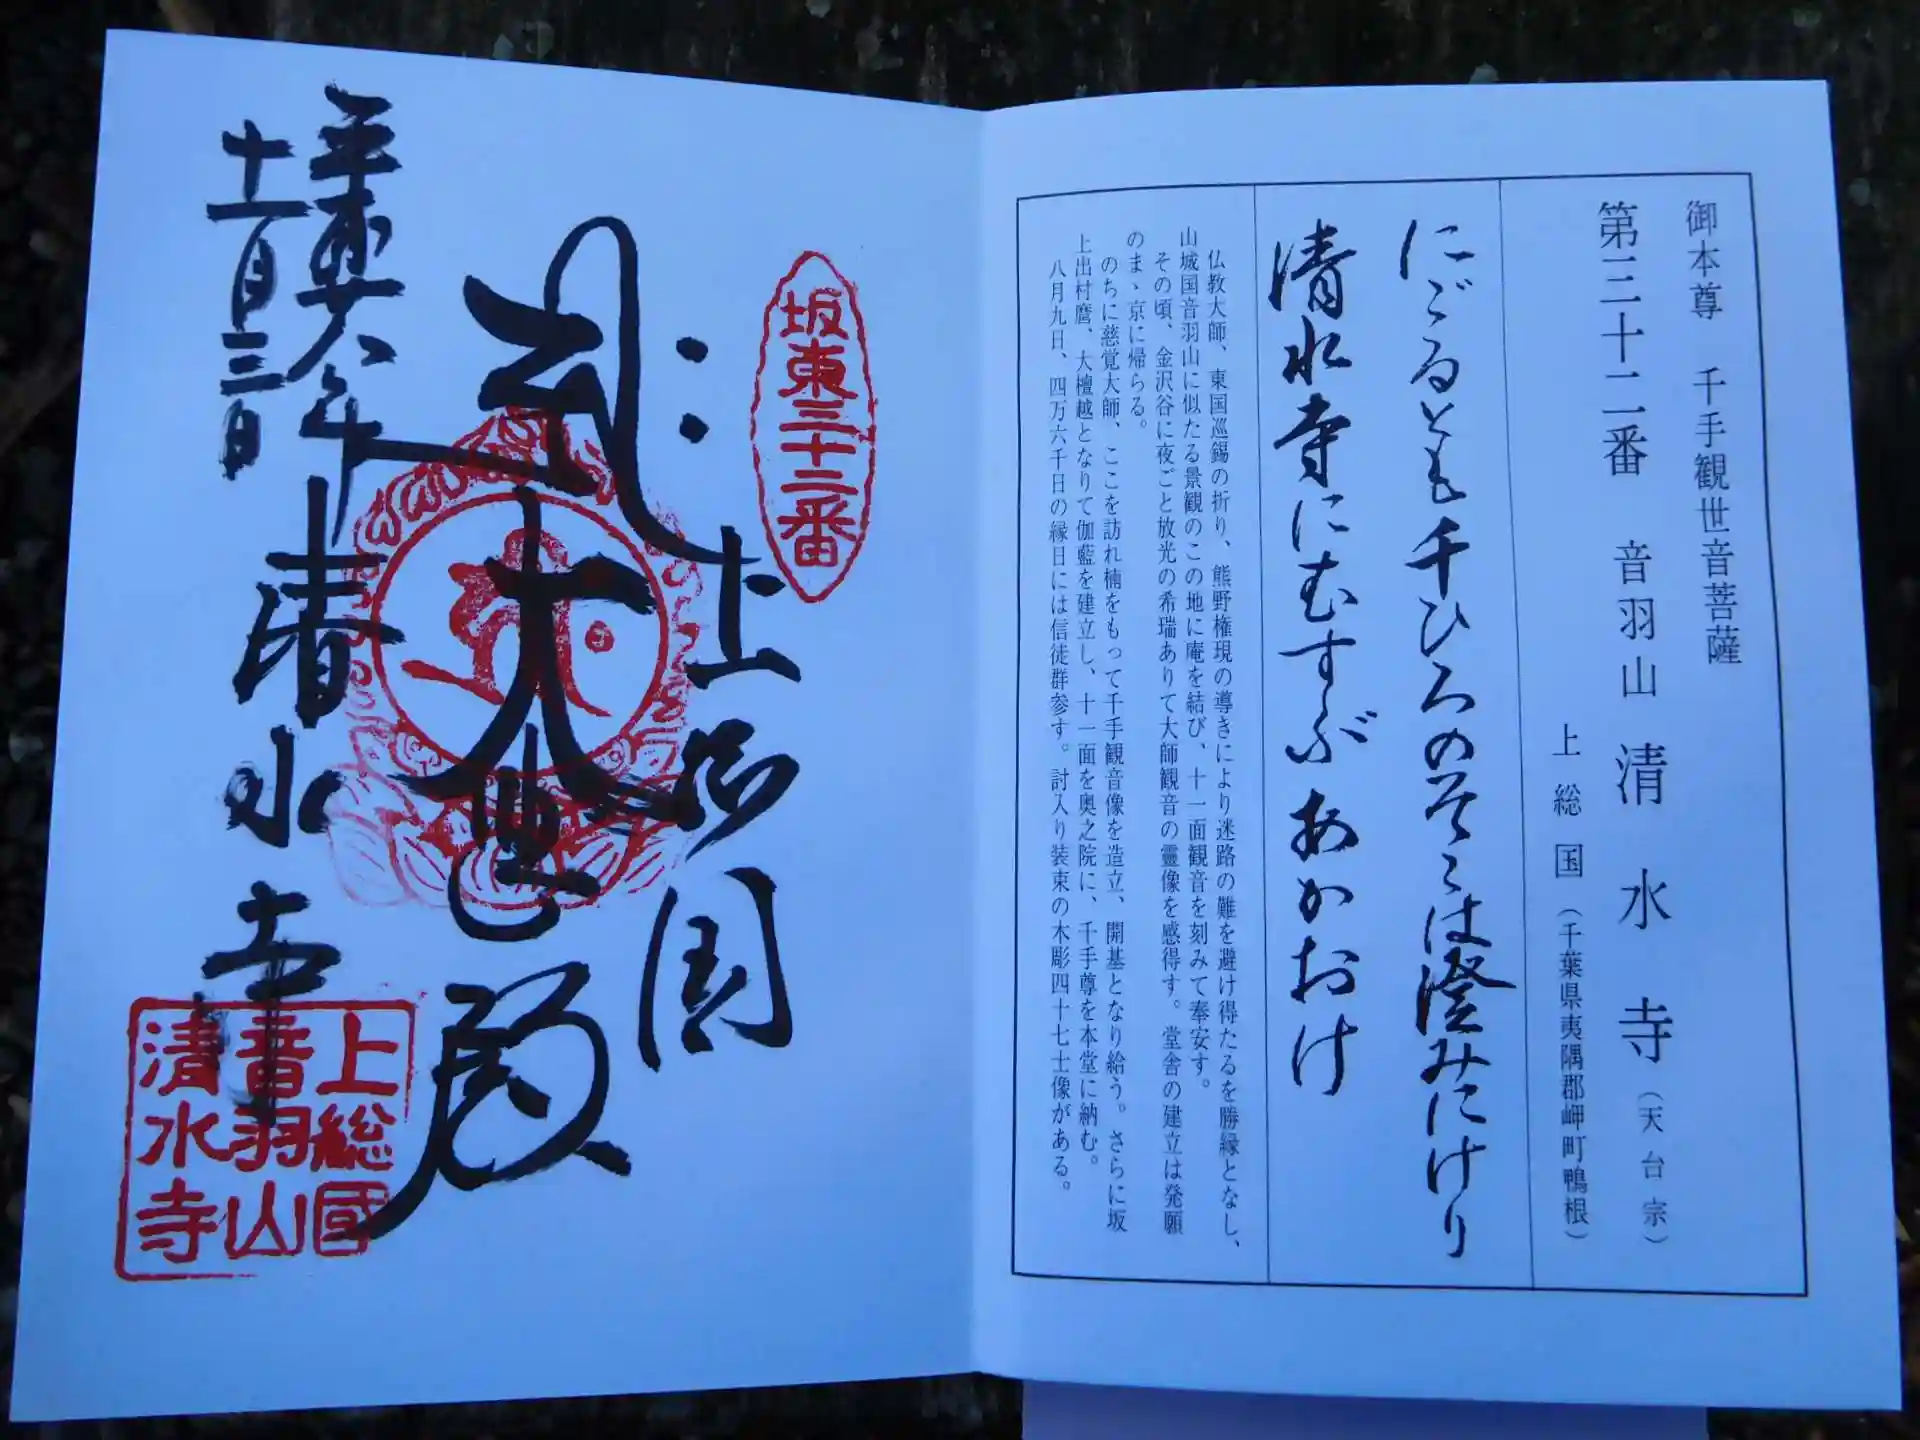 御本尊 千手観世音菩薩
第三十二番 音羽山 清水寺(天台宗)
上総国(千葉県夷隅郡岬町鴨根)
にごるとも千ひろのそこは澄みにけり
清水寺にむすぶあかおけ
仏教大師、東国巡錫の折り、熊野権現の導きにより迷路の難を避け得たるを勝縁となし、
山城国音羽山に似たる景観のこの地に庵を結び、十一面観音を刻みて奉安す。
その頃、金沢谷に夜ごと放光の希瑞ありて大師観音の靈像を感得す。堂舎の建立は発願
のまゝ京に帰らる。
のちに慈覚大師、ここを訪れ楠をもって千手観音像を造立、開基となり給う。さらに坂
上出村麿、大檀越となりて伽藍を建立し、十一面を奥之院に、千手尊を本堂に納む。
八月九日、四万六千日の縁日には信徒群参す。討入り装束の木彫四十七士像がある。
坂東三十二番
上総国
大悲殿
清水寺
十一月三日
上総國
音羽山
清水寺